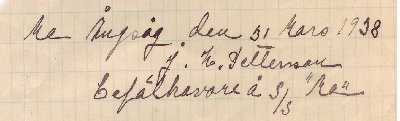 Ra Ångsåg den 31 Mars 1938
J. H. Petterson
befälhavare å S/S "Ra"